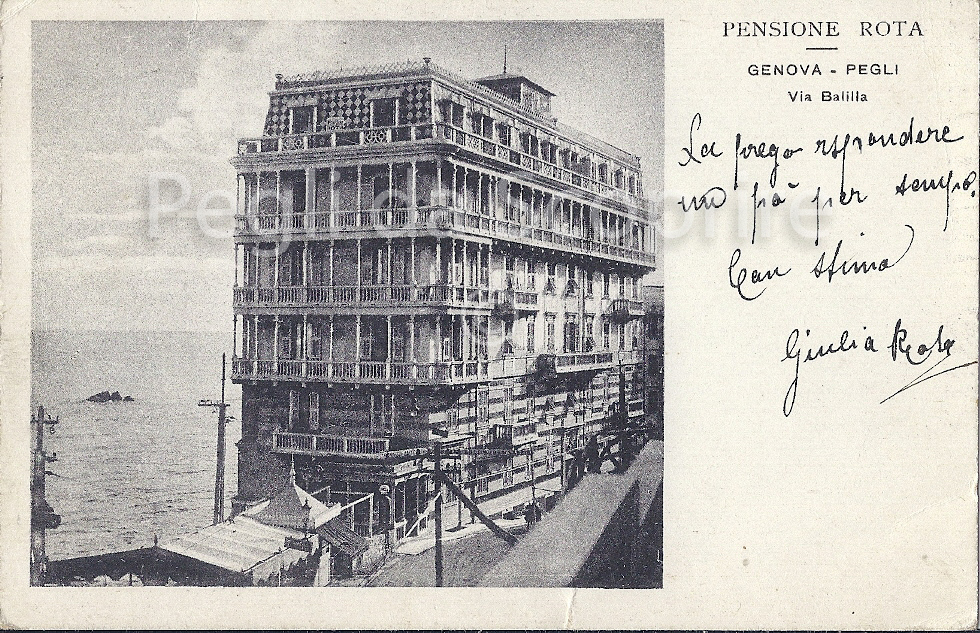 PENSIONE ROTA
GENOVA - PEGLI
Via Balilla
La prego rispondere
un pò per tempo.
Con stima
Giulia Rota
Pegli da